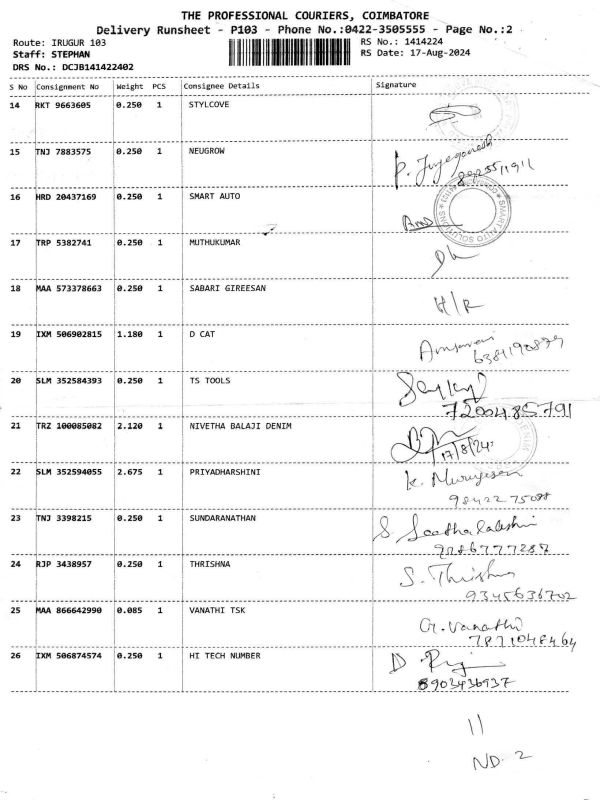 THE PROFESSIONAL COURIERS, COIMBATORE
Delivery Runsheet - P103 - Phone No.:0422-3505555 - Page No.:2
Route: IRUGUR 103 RS No.: 1414224
Staff: STEPHAN RS Date: 17-Aug-2024
DRS No.: DCJB141422402
S No Consignment No Weight PCS Consignee Details Signature
14 RKT 9663605 0.250 1 STYLCOVE
15 TNJ 7883575 0.250 1 NEUGROW
16 HRD 20437169 0.250 1 SMART AUTO
SMART AUTO SOLUTIONS
17 TRP 5382741 0.250 1 MUTHUKUMAR
18 MAA 573378663 0.250 1 SABARI GIREESAN
H/R
19 IXM 506902815 1.180 1 D CAT
20 SLM 352584393 0.250 1 TS TOOLS
7200485791
21 TRZ 100085082 2.120 1 NIVETHA BALAJI DENIM
17/8/24
22 SLM 352594055 2.675 1 PRIYADHARSHINI
K. Murugesan
23 TNJ 3398215 0.250 1 SUNDARANATHAN
24 RJP 3438957 0.250 1 THRISHNA
S. Thrishna
9345636702
25 MAA 866642990 0.085 1 VANATHI TSK
G. Vanathi
7871048464
26 IXM 506874574 0.250 1 HI TECH NUMBER
8903436937
11
ND - 2